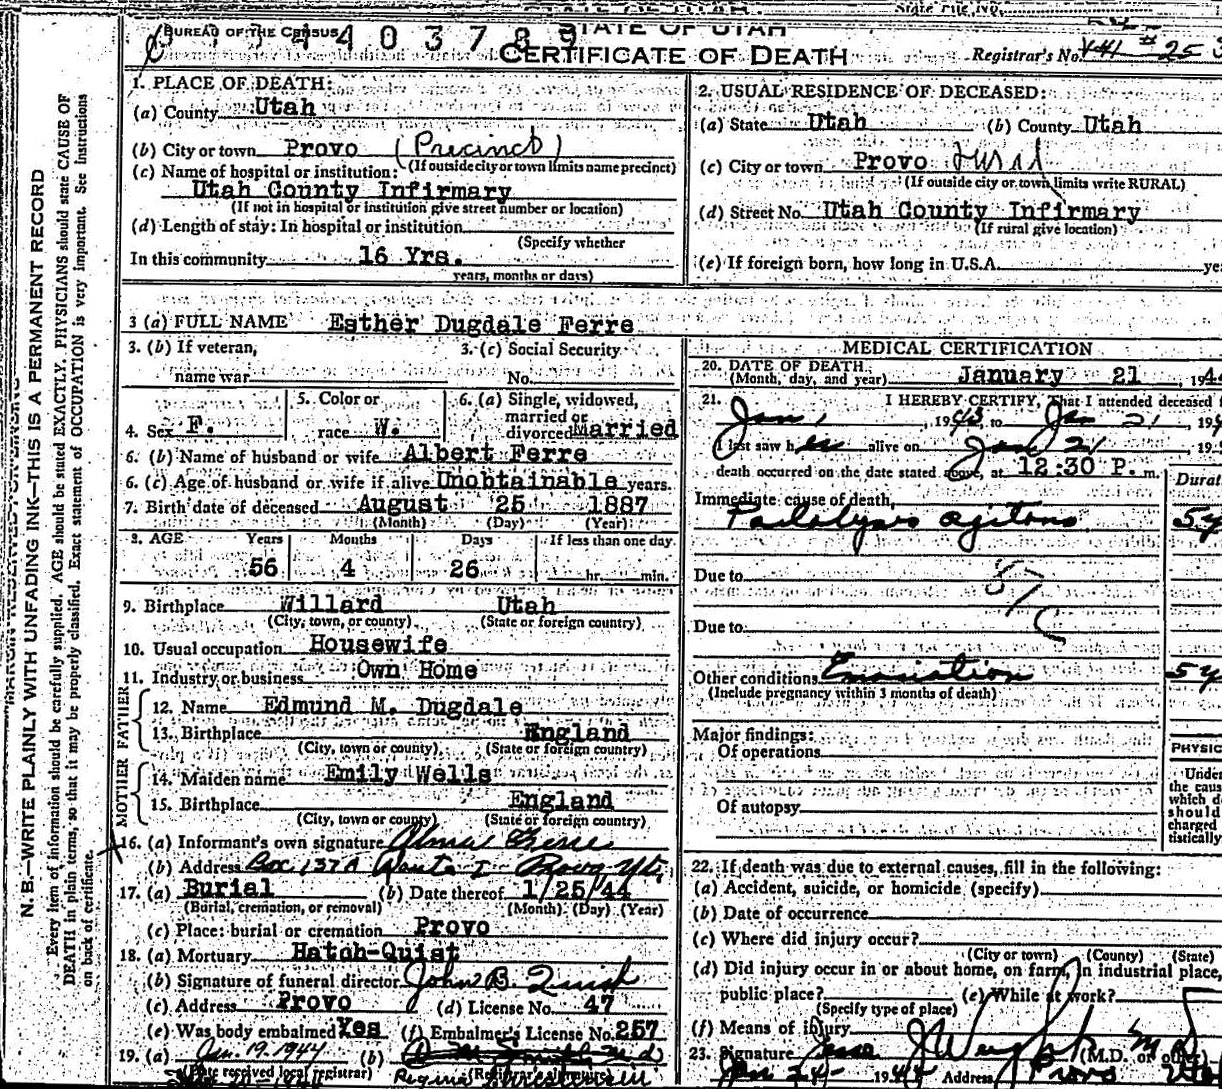 STATE OF UTAH
State File No.
BUREAU OF THE CENSUS
4 0 3 7 8 9
STATE OF UTAH
CERTIFICATE OF DEATH
Registrar's No. # 25
1. PLACE OF DEATH:
(a) County Utah
(b) City or town Provo (Precinct)
(If outside city or town limits name precinct)
(c) Name of hospital or institution:
Utah County Infirmary
(If not in hospital or institution give street number or location)
(d) Length of stay: In hospital or institution
(Specify whether
In this community 16 Yrs.
years, months or days)
2. USUAL RESIDENCE OF DECEASED:
(a) State Utah (b) County Utah
(c) City or town Provo rural
(If outside city or town limits write RURAL)
(d) Street No. Utah County Infirmary
(If rural give location)
(e) If foreign born, how long in U.S.A.
3 (a) FULL NAME Esther Dugdale Ferre
3. (b) If veteran,
name war
3. (c) Social Security
No.
4. Sex F.
5. Color or
race W.
6. (a) Single, widowed,
married or
divorced Married
6. (b) Name of husband or wife Albert Ferre
6. (c) Age of husband or wife if alive Unobtainable years.
7. Birth date of deceased August 25 1887
(Month) (Day) (Year)
8. AGE Years Months Days If less than one day
56 4 26 hr. min.
9. Birthplace Willard Utah
(City, town, or county) (State or foreign country)
10. Usual occupation Housewife
11. Industry or business Own Home
FATHER
12. Name Edmund M. Dugdale
13. Birthplace England
(City, town or county) (State or foreign country)
MOTHER
14. Maiden name Emily Wells
15. Birthplace England
(City, town or county) (State or foreign country)
16. (a) Informant's own signature Ferre
(b) Address Box 137A Route 1 Provo Ut.
17. (a) Burial (b) Date thereof 1/25/44
(Burial, cremation, or removal) (Month) (Day) (Year)
(c) Place: burial or cremation Provo
18. (a) Mortuary Hatch-Quist
(b) Signature of funeral director John B. Quist
(c) Address Provo (d) License No. 47
(e) Was body embalmed Yes (f) Embalmer's License No. 257
19. (a) Jan. 19. 1944 (b)
(Date received local registrar) (Registrar's signature)
MEDICAL CERTIFICATION
20. DATE OF DEATH
(Month, day, and year) January 21, 194
21. I HEREBY CERTIFY, That I attended deceased
Jan 1, 1943, to Jan 21, 19
I last saw her alive on Jan 21 19
death occurred on the date stated above, at 12:30 P. m.
Immediate cause of death Paralysis agitans 5 y
Due to 87
Due to c
Other conditions Emaciation 5 y
(Include pregnancy within 3 months of death)
Major findings:
Of operations
Of autopsy
22. If death was due to external causes, fill in the following:
(a) Accident, suicide, or homicide (specify)
(b) Date of occurrence
(c) Where did injury occur?
(City or town) (County) (State)
(d) Did injury occur in or about home, on farm, in industrial place,
public place? (e) While at work?
(Specify type of place)
(f) Means of injury
23. Signature (M.D. or other)
Address Provo
N. B.—WRITE PLAINLY WITH UNFADING INK—THIS IS A PERMANENT RECORD
Every item of information should be carefully supplied. AGE should be stated EXACTLY. PHYSICIANS should state CAUSE OF
DEATH in plain terms, so that it may be properly classified. Exact statement of OCCUPATION is very important. See Instructions
on back of certificate.